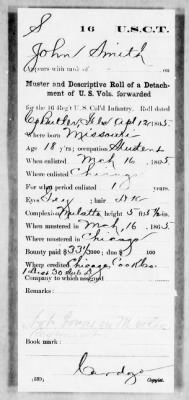 S 16 U.S.C.T.
John Smith
Appears with rank of
Muster and Descriptive Roll of a Detachment
of U. S. Vols. forwarded
for the 16 Reg't U. S. Col'd Infantry. Roll dated
Camp Butler, Ills Apl 12, 1865.
Where born Missouri
Age 18 y'rs; occupation Student
When enlisted Mch 16, 1865
Where enlisted Chicago
For what period enlisted 1 years.
Eyes Gray; hair
Complexion Mulatto; height 5 ft. in.
When mustered in Mch, 16, 1865
Where mustered in Chicago
Bounty paid $33 33/100; due $ 100
Where credited Chicago Cook Co.
1 Dist
Company to which assigned
Remarks:
Book mark:
(339) Copyist.